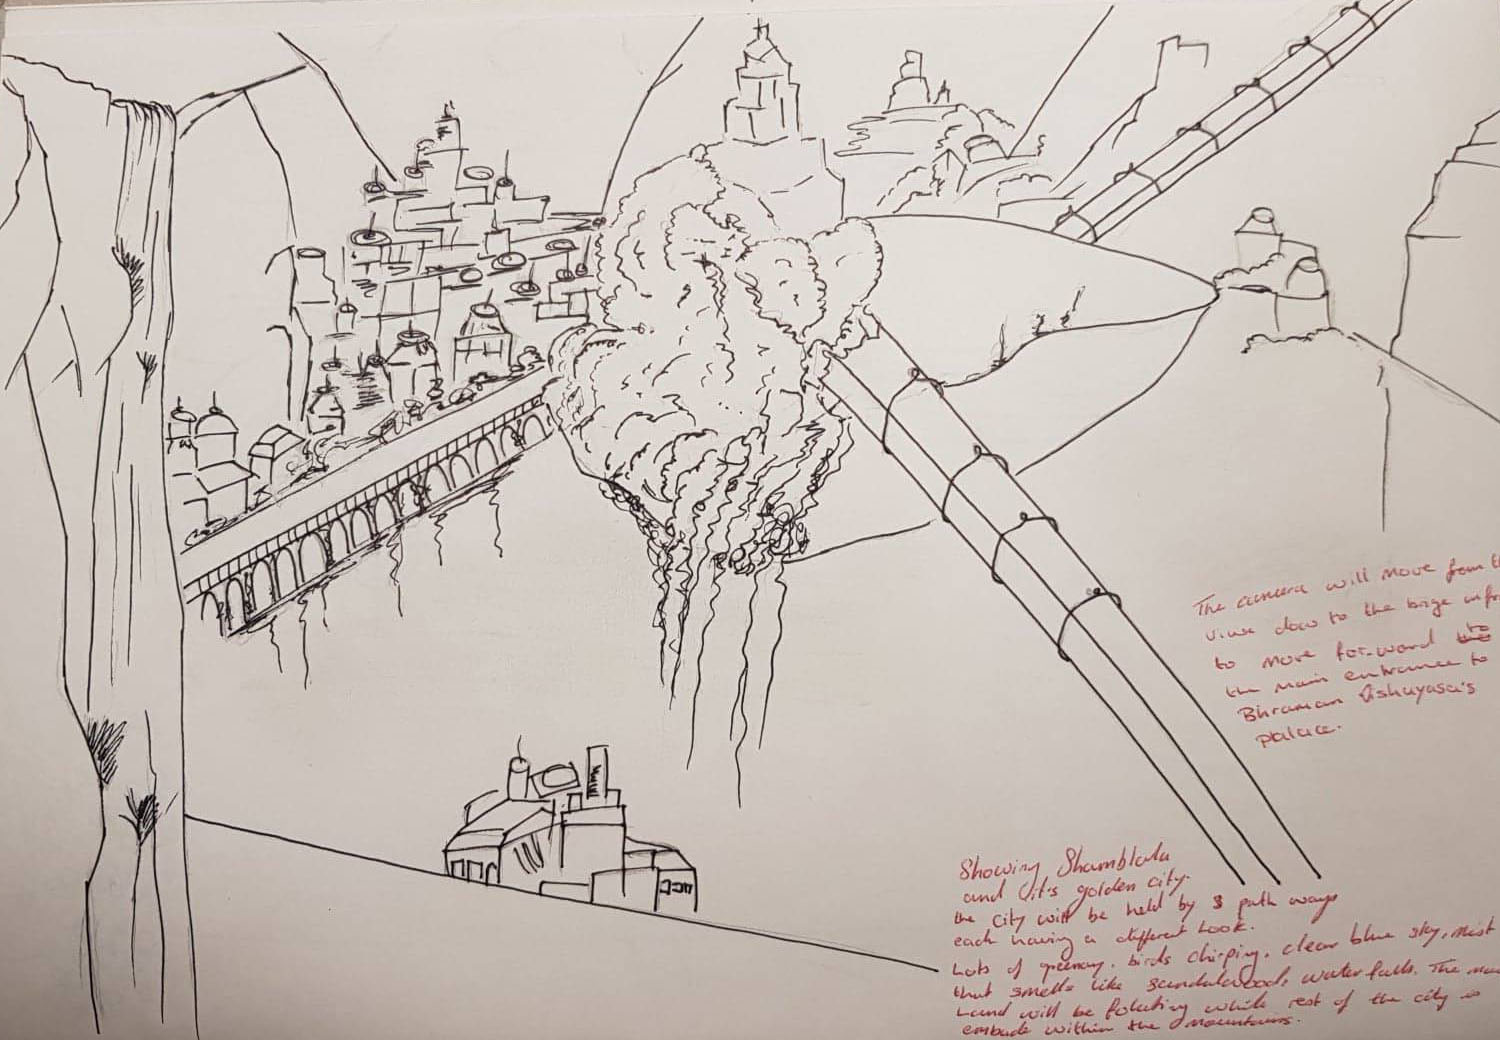 The camera will move from
view dow to the brige
to move forward
the main entrance to
Bhraman Vishuyasa's
palace.
Showing Shambhala
and it's golden city.
the city will be held by 3 path ways
each having a different look.
Lots of greenary, birds chirping, clear blue sky, mist
that smells like sandalwood, water falls. The
Land will be floating while rest of the city is
embade within the mountains.